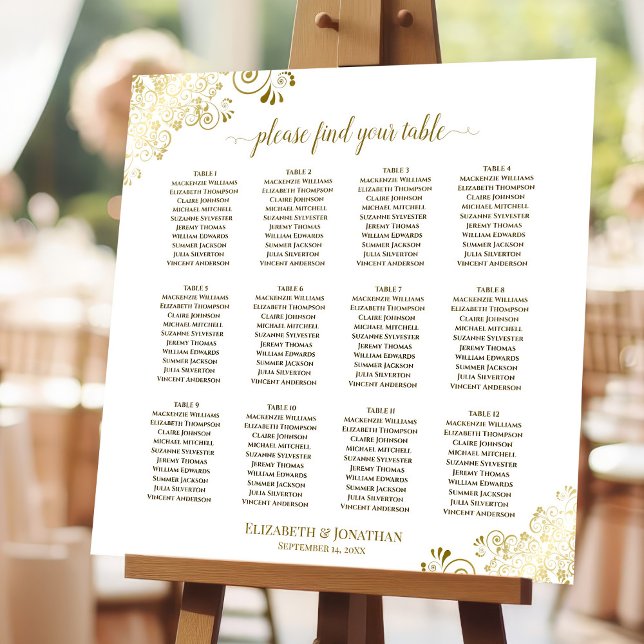 please find your table
TABLE 1
MACKENZIE WILLIAMS
ELIZABETH THOMPSON
CLAIRE JOHNSON
MICHAEL MITCHELL
SUZANNE SYLVESTER
JEREMY THOMAS
WILLIAM EDWARDS
SUMMER JACKSON
JULIA SILVERTON
VINCENT ANDERSON
TABLE 2
MACKENZIE WILLIAMS
ELIZABETH THOMPSON
CLAIRE JOHNSON
MICHAEL MITCHELL
SUZANNE SYLVESTER
JEREMY THOMAS
WILLIAM EDWARDS
SUMMER JACKSON
JULIA SILVERTON
VINCENT ANDERSON
TABLE 3
MACKENZIE WILLIAMS
ELIZABETH THOMPSON
CLAIRE JOHNSON
MICHAEL MITCHELL
SUZANNE SYLVESTER
JEREMY THOMAS
WILLIAM EDWARDS
SUMMER JACKSON
JULIA SILVERTON
VINCENT ANDERSON
TABLE 4
MACKENZIE WILLIAMS
ELIZABETH THOMPSON
CLAIRE JOHNSON
MICHAEL MITCHELL
SUZANNE SYLVESTER
JEREMY THOMAS
WILLIAM EDWARDS
SUMMER JACKSON
JULIA SILVERTON
VINCENT ANDERSON
TABLE 5
MACKENZIE WILLIAMS
ELIZABETH THOMPSON
CLAIRE JOHNSON
MICHAEL MITCHELL
SUZANNE SYLVESTER
JEREMY THOMAS
WILLIAM EDWARDS
SUMMER JACKSON
JULIA SILVERTON
VINCENT ANDERSON
TABLE 6
MACKENZIE WILLIAMS
ELIZABETH THOMPSON
CLAIRE JOHNSON
MICHAEL MITCHELL
SUZANNE SYLVESTER
JEREMY THOMAS
WILLIAM EDWARDS
SUMMER JACKSON
JULIA SILVERTON
VINCENT ANDERSON
TABLE 7
MACKENZIE WILLIAMS
ELIZABETH THOMPSON
CLAIRE JOHNSON
MICHAEL MITCHELL
SUZANNE SYLVESTER
JEREMY THOMAS
WILLIAM EDWARDS
SUMMER JACKSON
JULIA SILVERTON
VINCENT ANDERSON
TABLE 8
MACKENZIE WILLIAMS
ELIZABETH THOMPSON
CLAIRE JOHNSON
MICHAEL MITCHELL
SUZANNE SYLVESTER
JEREMY THOMAS
WILLIAM EDWARDS
SUMMER JACKSON
JULIA SILVERTON
VINCENT ANDERSON
TABLE 9
MACKENZIE WILLIAMS
ELIZABETH THOMPSON
CLAIRE JOHNSON
MICHAEL MITCHELL
SUZANNE SYLVESTER
JEREMY THOMAS
WILLIAM EDWARDS
SUMMER JACKSON
JULIA SILVERTON
VINCENT ANDERSON
TABLE 10
MACKENZIE WILLIAMS
ELIZABETH THOMPSON
CLAIRE JOHNSON
MICHAEL MITCHELL
SUZANNE SYLVESTER
JEREMY THOMAS
WILLIAM EDWARDS
SUMMER JACKSON
JULIA SILVERTON
VINCENT ANDERSON
TABLE 11
MACKENZIE WILLIAMS
ELIZABETH THOMPSON
CLAIRE JOHNSON
MICHAEL MITCHELL
SUZANNE SYLVESTER
JEREMY THOMAS
WILLIAM EDWARDS
SUMMER JACKSON
JULIA SILVERTON
VINCENT ANDERSON
TABLE 12
MACKENZIE WILLIAMS
ELIZABETH THOMPSON
CLAIRE JOHNSON
MICHAEL MITCHELL
SUZANNE SYLVESTER
JEREMY THOMAS
WILLIAM EDWARDS
SUMMER JACKSON
JULIA SILVERTON
VINCENT ANDERSON
ELIZABETH & JONATHAN
SEPTEMBER 14, 20XX